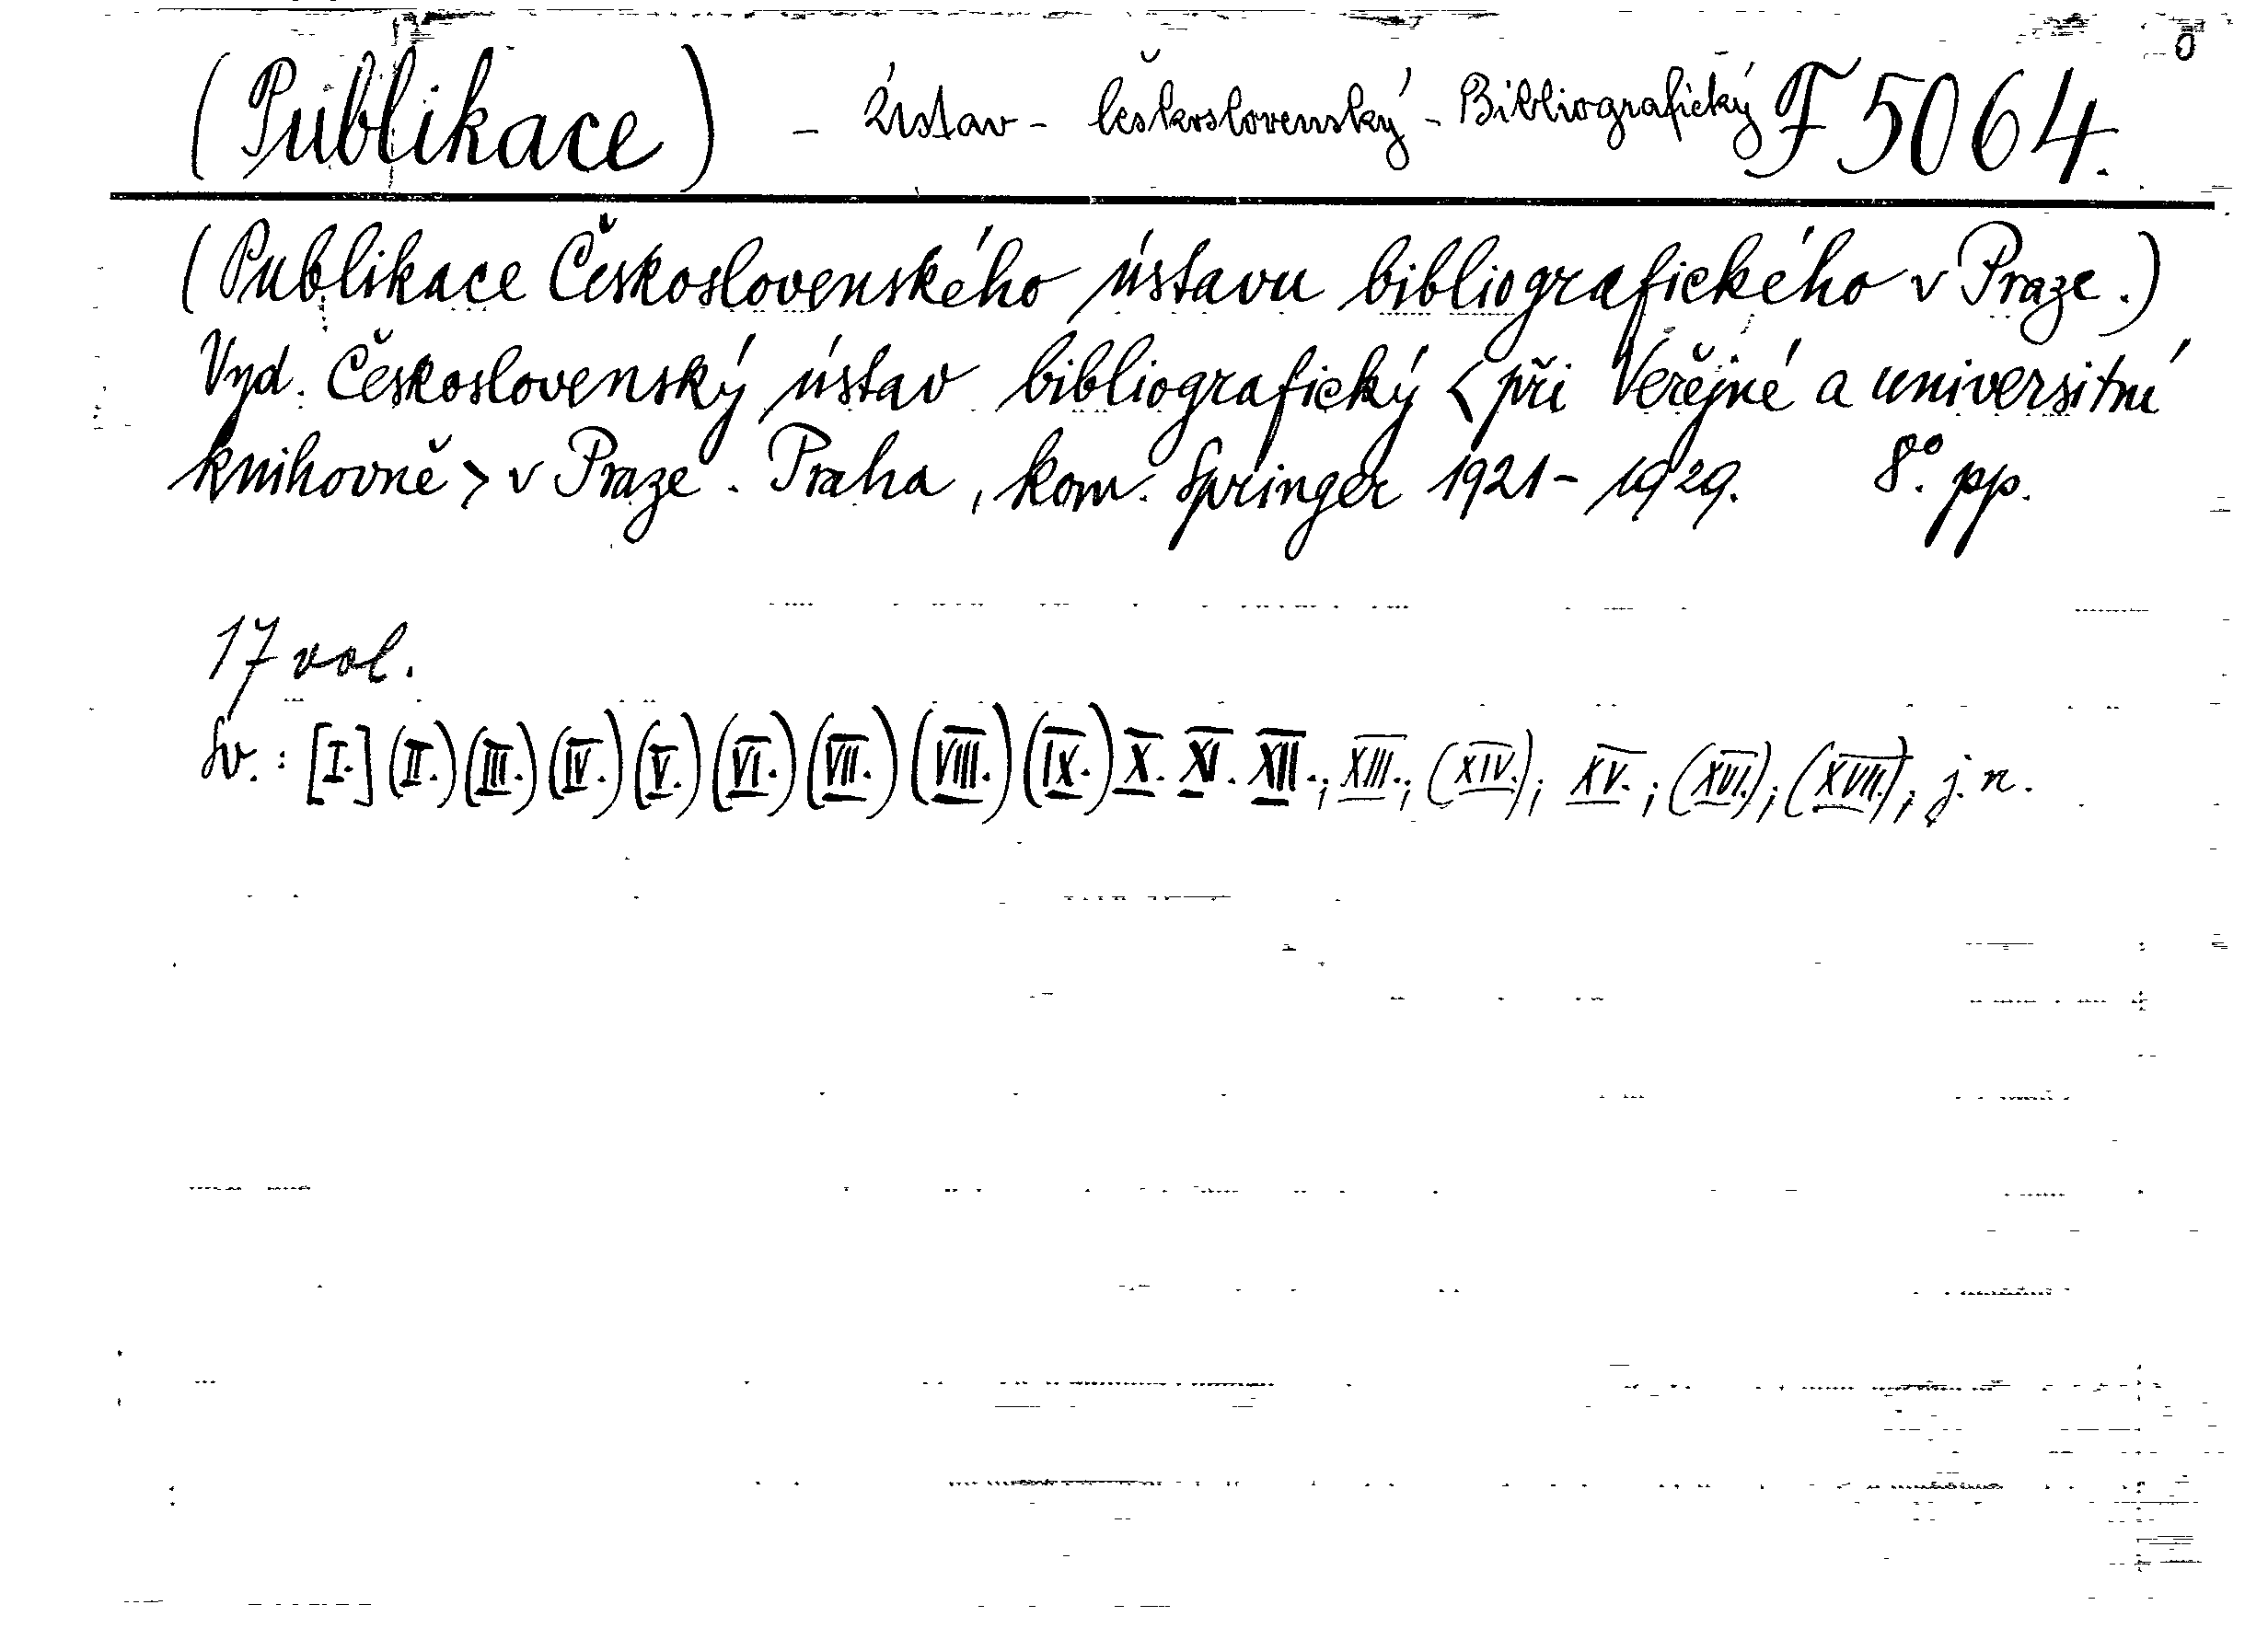 (Publikace) - Ústav - Československý - Bibliografický F 5064.
(Publikace Československého ústavu bibliografického v Praze.)
Vyd. Československý ústav bibliografický < při Veřejné a universitní
knihovně > v Praze. Praha, kom. Springer 1921-1929. 8°. pp.
17 vol.
Sv.: [I.] (II.) (III.) (IV.) (V.) (VI.) (VII.) (VIII.) (IX.) X. XI. XII.; XIII.; (XIV.); XV.; (XVI.); (XVII.); j. n.